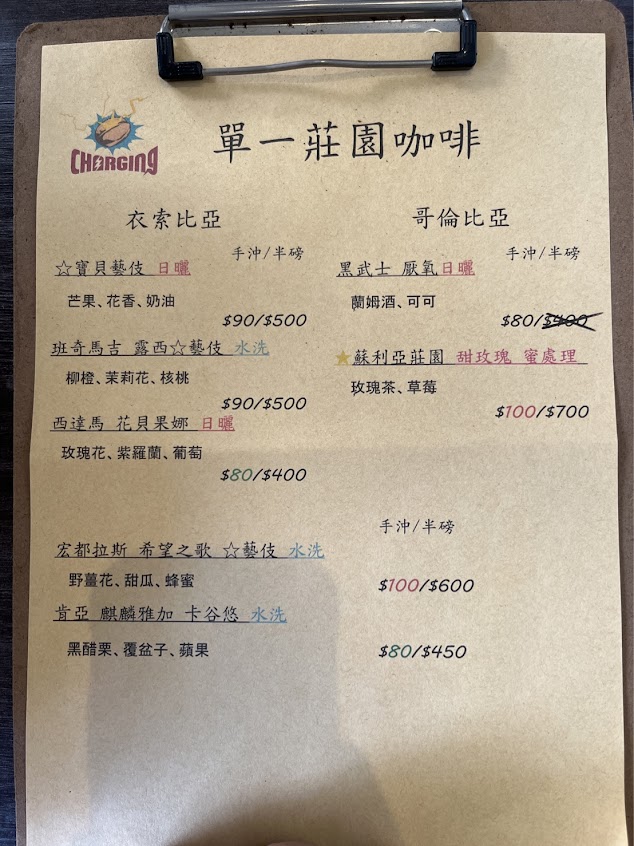 CHARGING
單一莊園咖啡
衣索比亞
手沖/半磅
☆寶貝藝伎 日曬
芒果、花香、奶油
$90/$500
班奇馬吉 露西☆藝伎 水洗
柳橙、茉莉花、核桃
$90/$500
西達馬 花貝果娜 日曬
玫瑰花、紫羅蘭、葡萄
$80/$400
哥倫比亞
手沖/半磅
黑武士 厭氧日曬
蘭姆酒、可可
$80/$400
★蘇利亞莊園 甜玫瑰 蜜處理
玫瑰茶、草莓
$100/$700
手沖/半磅
宏都拉斯 希望之歌 ☆藝伎 水洗
野薑花、甜瓜、蜂蜜
$100/$600
肯亞 麒麟雅加 卡谷悠 水洗
黑醋栗、覆盆子、蘋果
$80/$450